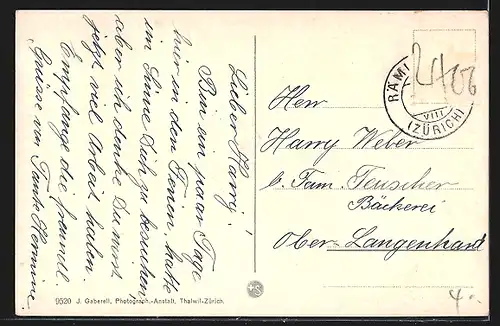 Lieber Harry!
Bin ein paar Tage
hier in den Ferien hatte
im Sinne Dich zu besuchen,
aber ich denke Du wirst
jetzt viel Arbeit haben
Empfange die freundl
Grüsse von Tante Hermine
Herr
Harry Weber
b. Fam. Teuscher
Bäckerei
Ober-Langenhard
RÄMI
VIII
(ZÜRICH)
9520 J. Gaberell, Photograph.-Anstalt, Thalwil-Zürich.
4.-